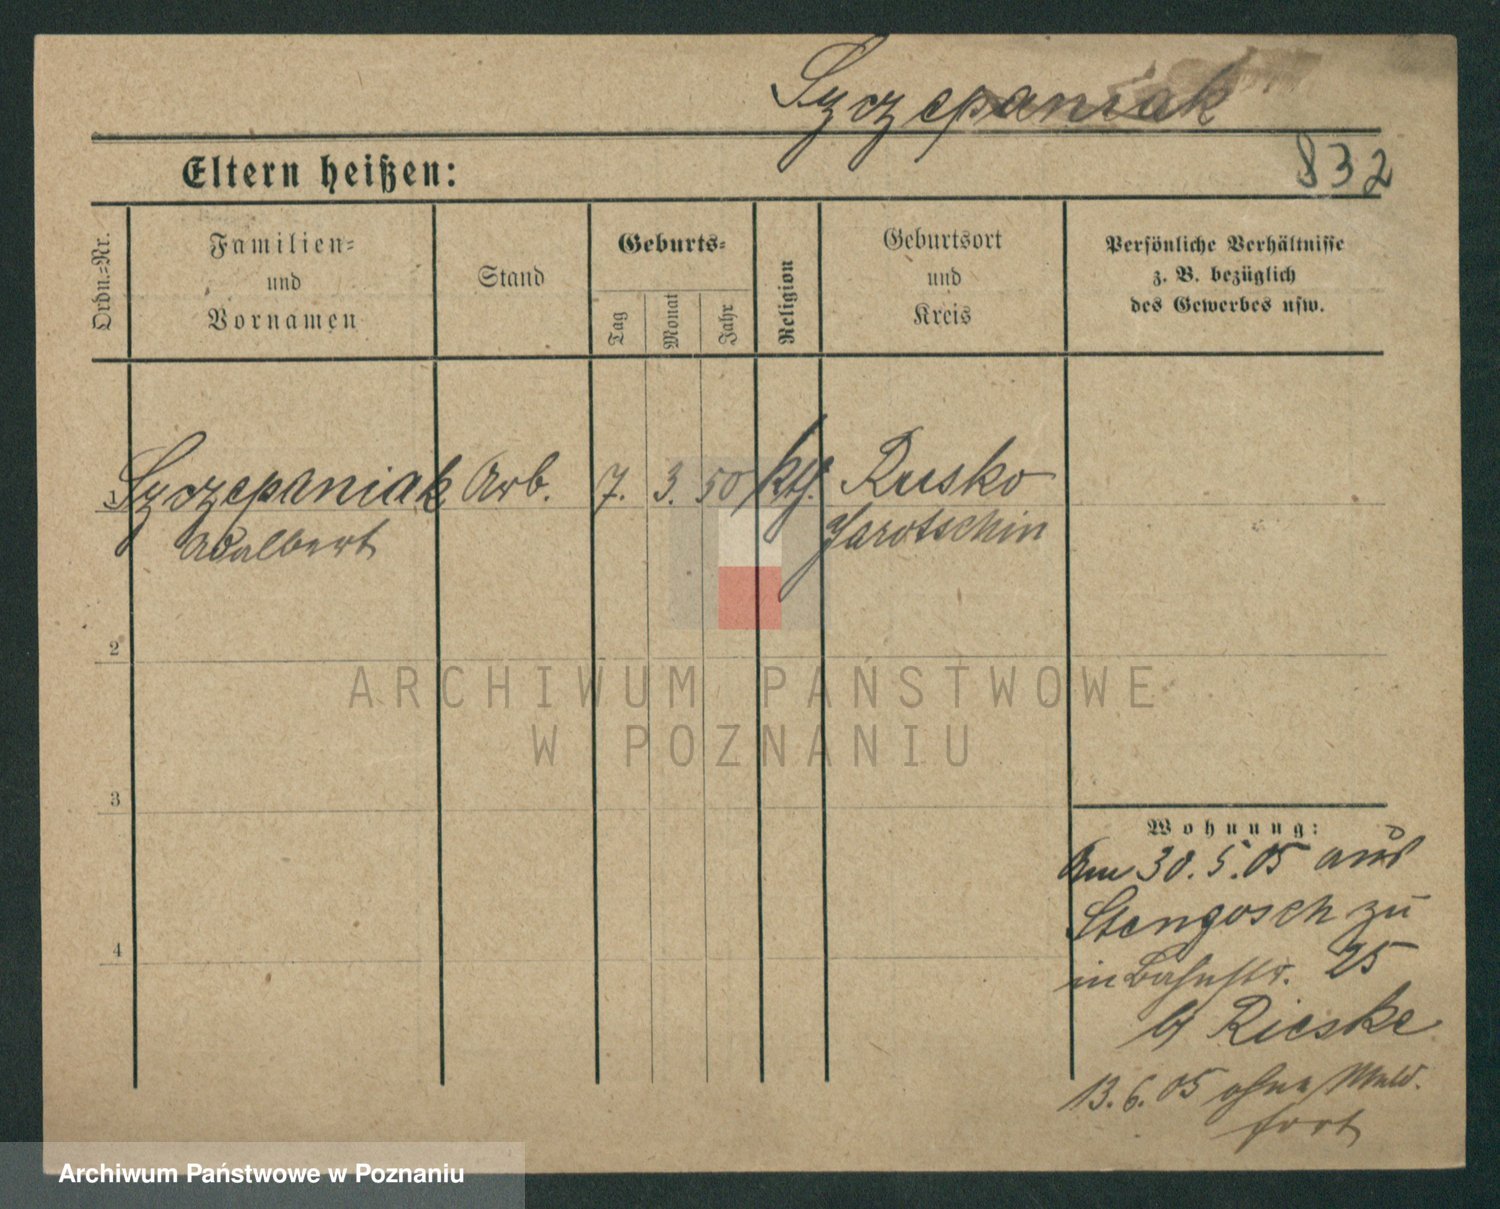 Szczepaniak
832
Eltern heißen:
Ordn.-Nr.
Familien-
und
Vornamen
Stand
Geburts-
Tag
Monat
Jahr
Religion
Geburtsort
und
Kreis
Persönliche Verhältnisse
z. B. bezüglich
des Gewerbes usw.
Szczepaniak Arb. 7. 3. 50 kth. Rusko
Adalbert Jarotschin
2
3
4
Wohnung:
Am 30.5.05 aus
Stengosch zu
in Bahnstr. 25
b/ Rieske
13.6.05 ohne Meld.
fort
ARCHIWUM PAŃSTWOWE
W POZNANIU
Archiwum Państwowe w Poznaniu